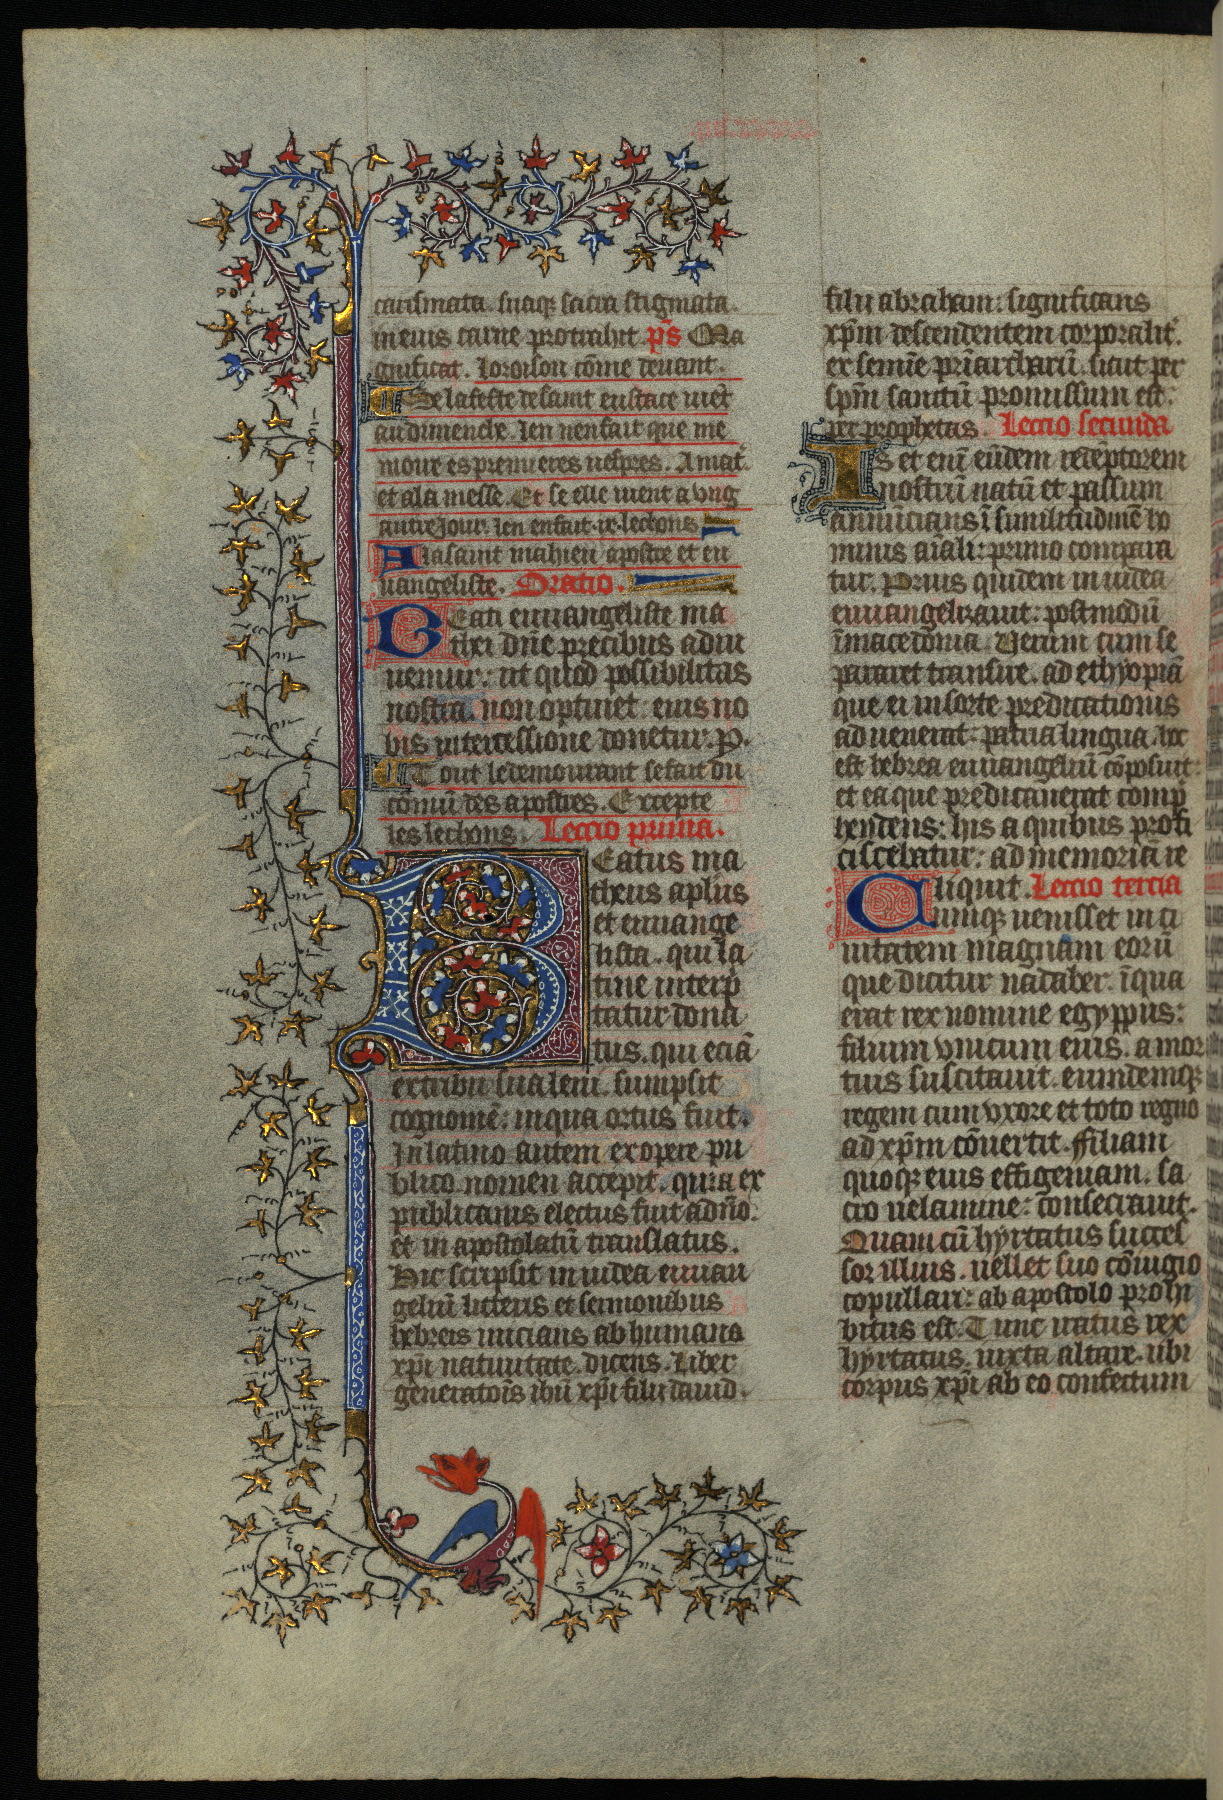 carismata. suaque sacra stigmata.
in eius carne protrahit. ps̄ Ma
gnificat. Loroison cōme deuant.
Se la feste de saint eustace viēt
au dimenche. len nen fait que me
moire es premieres vespres. A mat̄.
et a la messe. Et se elle vient a vng
autre Jour. len en fait .ix. lechons
A la saint mahieu apostre et eu
uangeliste. Oratio.
Beati euuangeliste ma
thei dn̄e precibus adiu
uemur: ut quod possibilitas
nostra. non optinet. eius no
bis intercessione donetur. P.
Tout le demourant se fait du
comū des apostres. Excepte
les lechons. Leccio prima.
Beatus ma
theus aplūs
et euuange
lista. qui la
tine interp̄
tatur dona
tus. qui eciā
ex tribu sua leui. sumpsit
cognomē: in qua ortus fuit.
In latino autem ex opere pu
blico nomen accepit. quia ex
publicanis electus fuit a dn̄o:
et in apostolatū translatus.
Hic scripsit in iudea euuan
geliū litteris et sermonibus
hebreis inicians ab humana
xp̄i natiuitate. dicens. Liber
generatōis ih̄u xp̄i filii dauid.
filii abraham: significans
xp̄m descendentem corporalit̄.
ex semīe pr̄iarcharū. sicut per
sp̄m sanctū promissum est
per prophetas. Leccio secunda
Is et enī eūdem receptorem
nostrū natū et passum
annūcians ī similitudinē ho
minis aīali: primo compara
tur. Prius quidem in iudea
euuangelizauit: postmodū
ī macedonia. Verum cum se
pararet transire. ad ethyopiā
que ei in sorte predicationis
aduenerat: patria lingua. hoc
est hebrea euuangeliū cōposuit:
et ea que predicauerat comp̄
hendens: his a quibus profi
ciscebatur: ad memoriā re
liquit. Leccio tercia
Cumque venisset in ci
uitatem magnam eorū
que dicitur nādaber. ī qua
erat rex nomine egyppus:
filium vnicum eius. a mor
tuis suscitauit. eumdemque
regem cum vxore et toto regno
ad xp̄m cōuertit. Filiam
quoque eius effigeniam. sa
cro uelamine: consecrauit.
Quam cū hyrtatus succes
sor illius. vellet suo cōiugio
copulari: ab apostolo prohi
bitus est. Tunc iratus rex
hyrtatus. iuxta altare. ubi
corpus xp̄i ab eo confectum